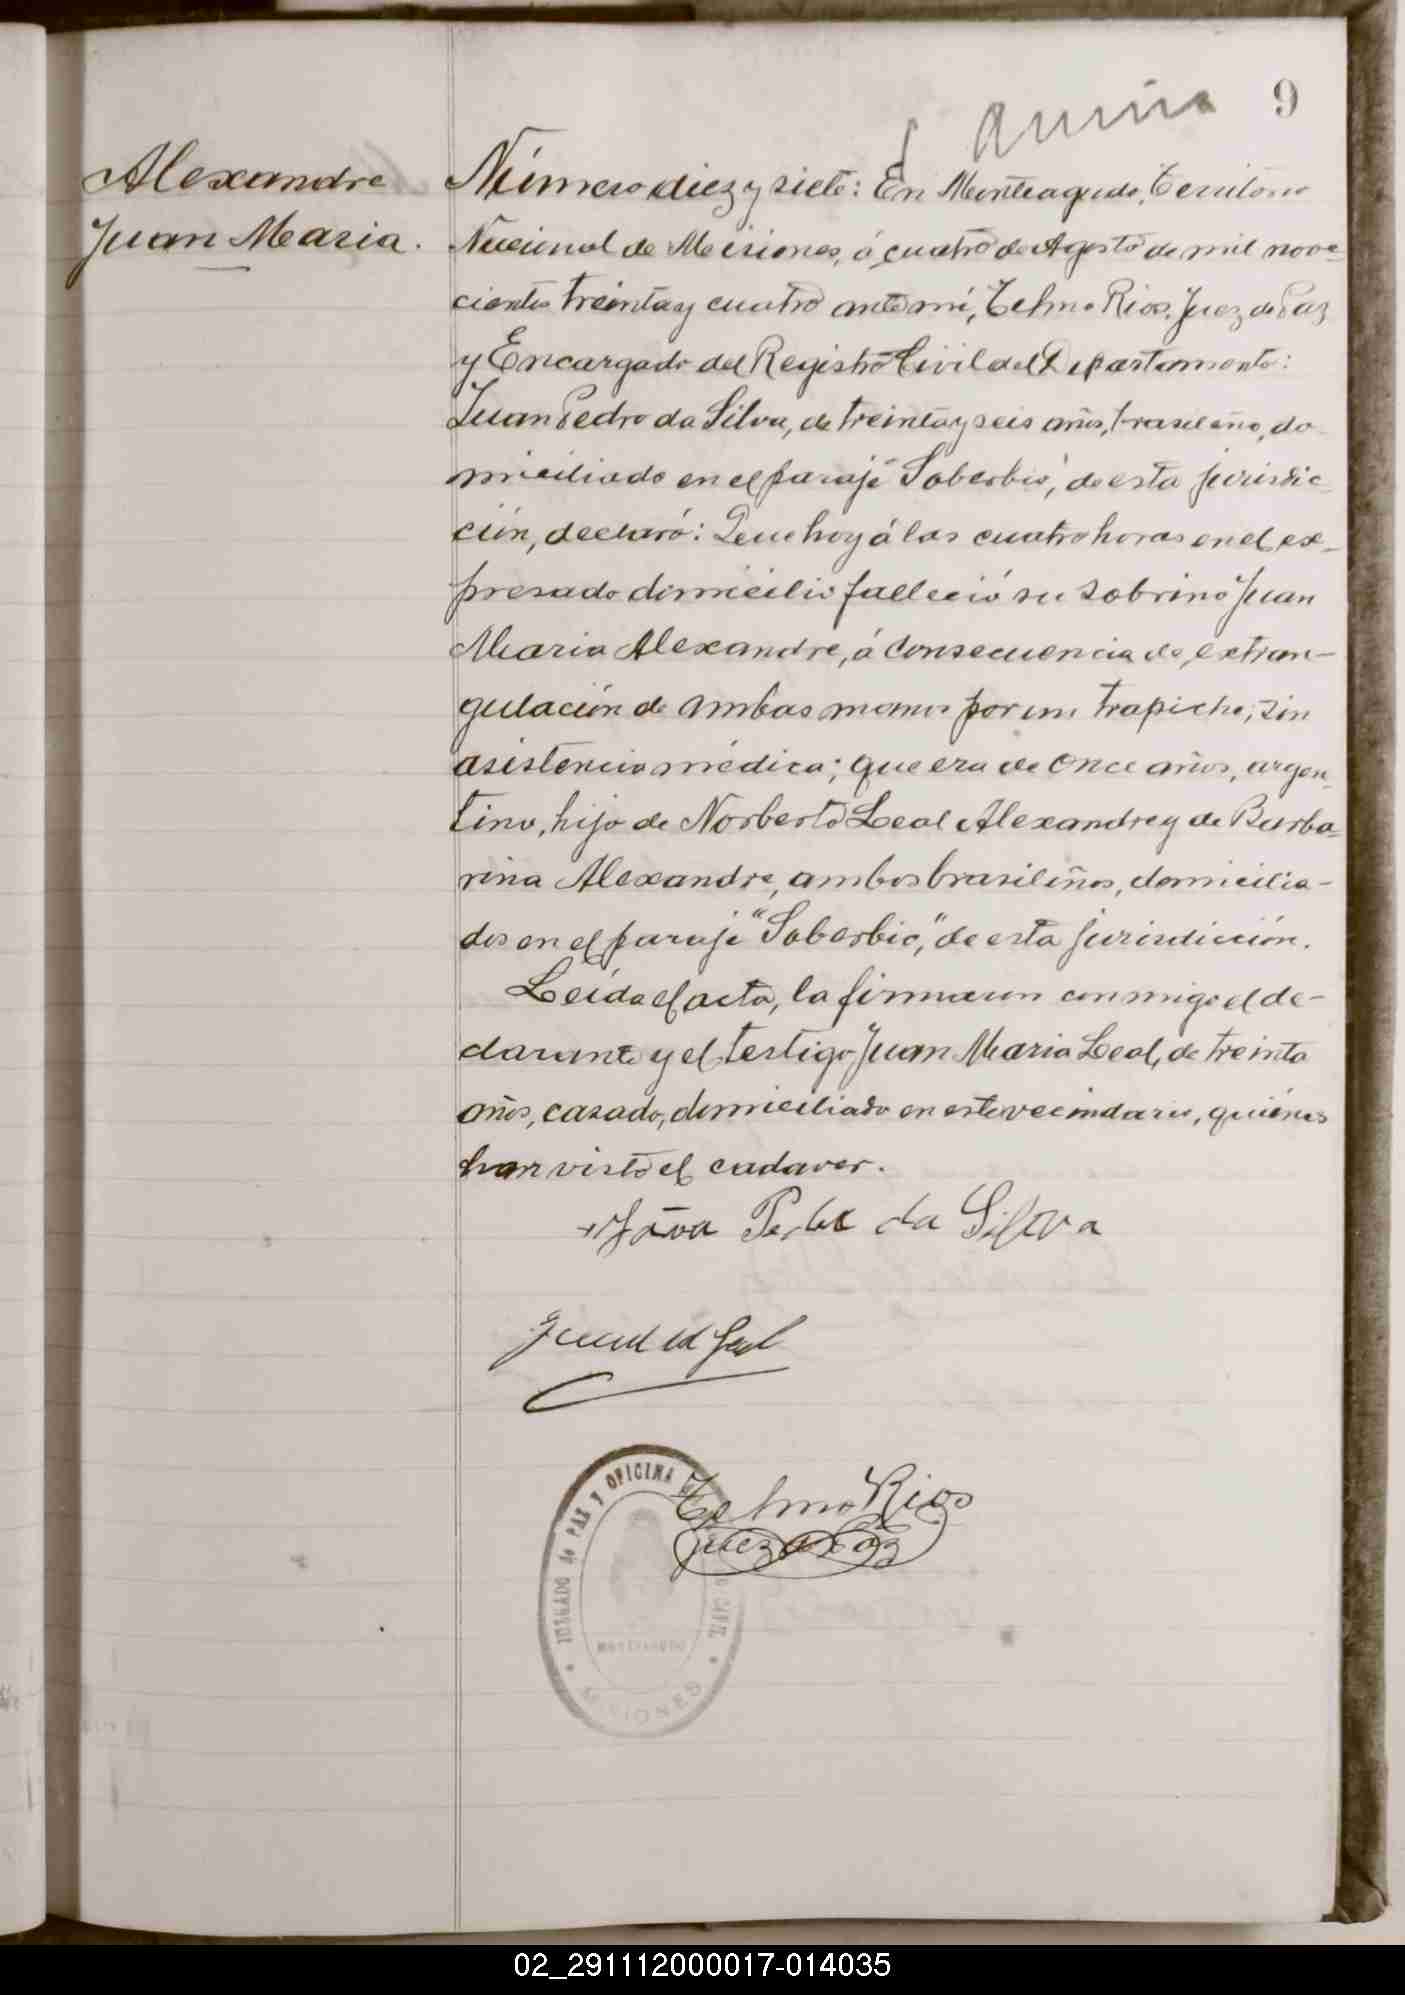 9
Alexandre
Juan Maria.
Número diez y siete: En Monteagudo, Territorio
Nacional de Misiones, á cuatro de Agosto de mil nove-
cientos treinta y cuatro ante mí, Telmo Rios, Juez de Paz
y Encargado del Registro Civil del Departamento:
Juan Pedro da Silva, de treinta y seis años, brasileño, do-
miciliado en el paraje "Soberbio", de esta jurisdic-
ción, declaró: Que hoy á las cuatro horas en el ex-
presado domicilio falleció su sobrino Juan
Maria Alexandre, á consecuencia de extran-
gulación de ambas manos por un trapiche, sin
asistencia médica; que era de once años, argen-
tino, hijo de Norberto Leal Alexandre y de Barba-
rina Alexandre, ambos brasileños, domicilia-
dos en el paraje "Soberbio," de esta jurisdicción.
Leída el acta, la firmaron conmigo el de-
clarante y el testigo Juan Maria Leal, de treinta
años, casado, domiciliado en este vecindario, quiénes
han visto el cadaver.
da Silva
Telmo Rios
Juez de Paz
JUZGADO de PAZ Y OFICINA
CIVIL
MONTEAGUDO
MISIONES
02_291112000017-014035